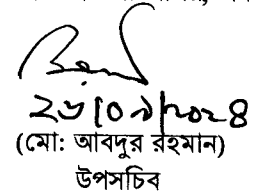 ২৬/০৯/২০২৪
(মো: আবদুর রহমান)
উপসচিব